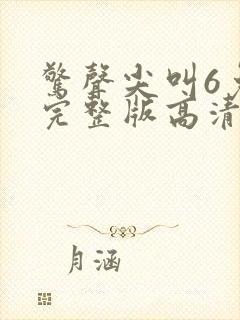 驚聲尖叫6
完整版高清
月涵